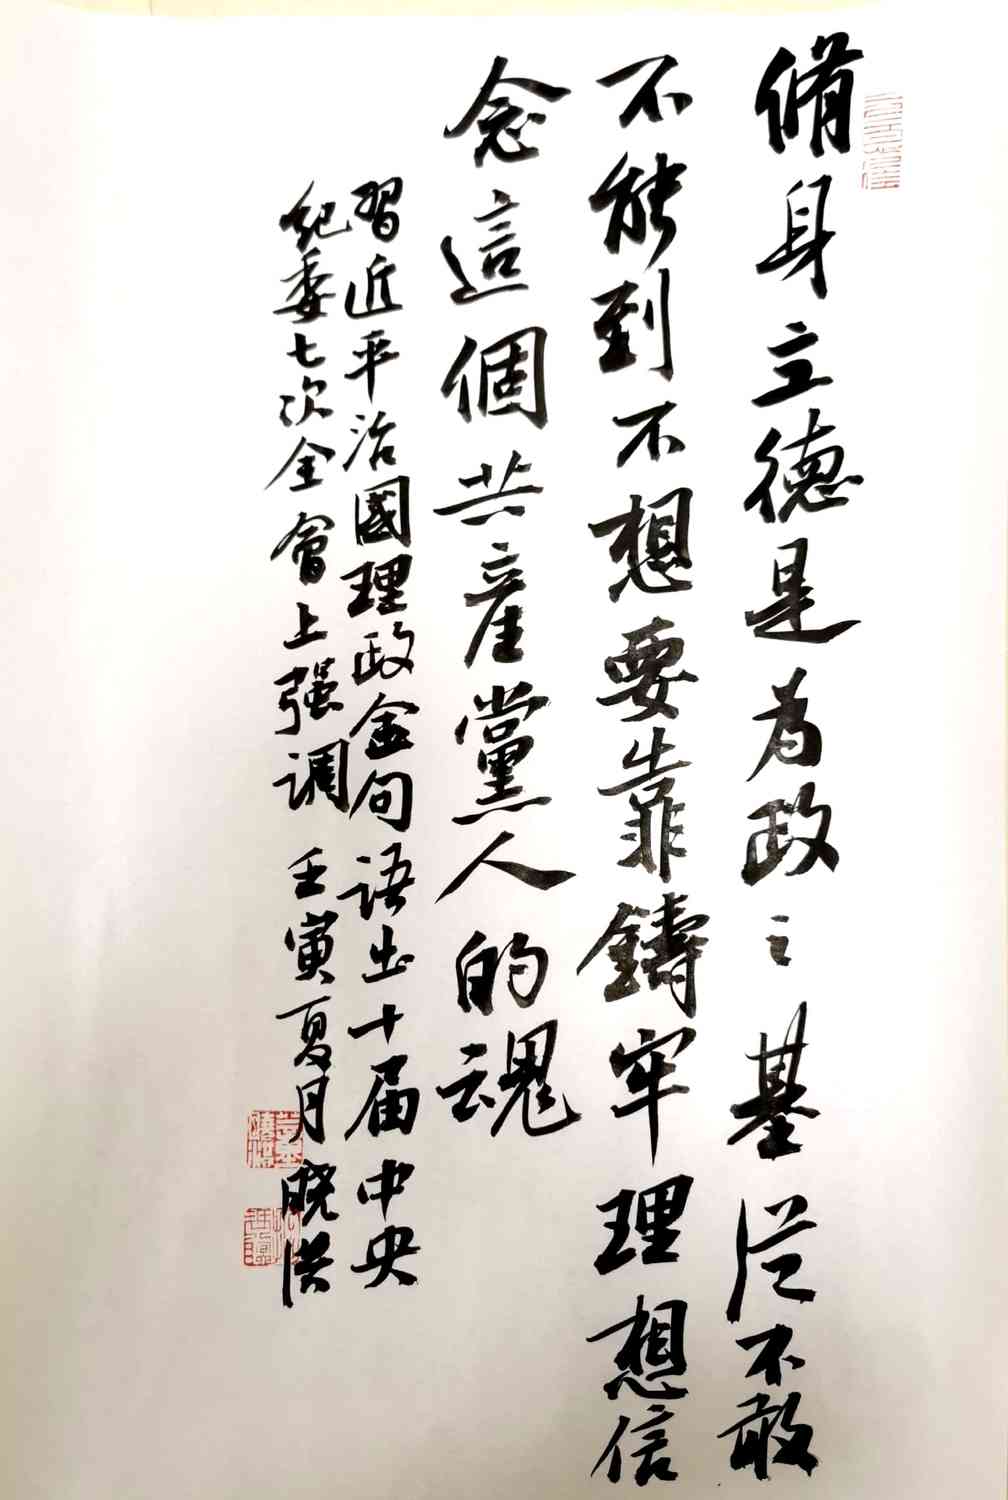 脩身立德是为政之基從不敢
不能到不想要靠鑄牢理想信
念這個共產黨人的魂
習近平治國理政金句语出十届中央
纪委七次全會上强调 壬寅夏月晓洪